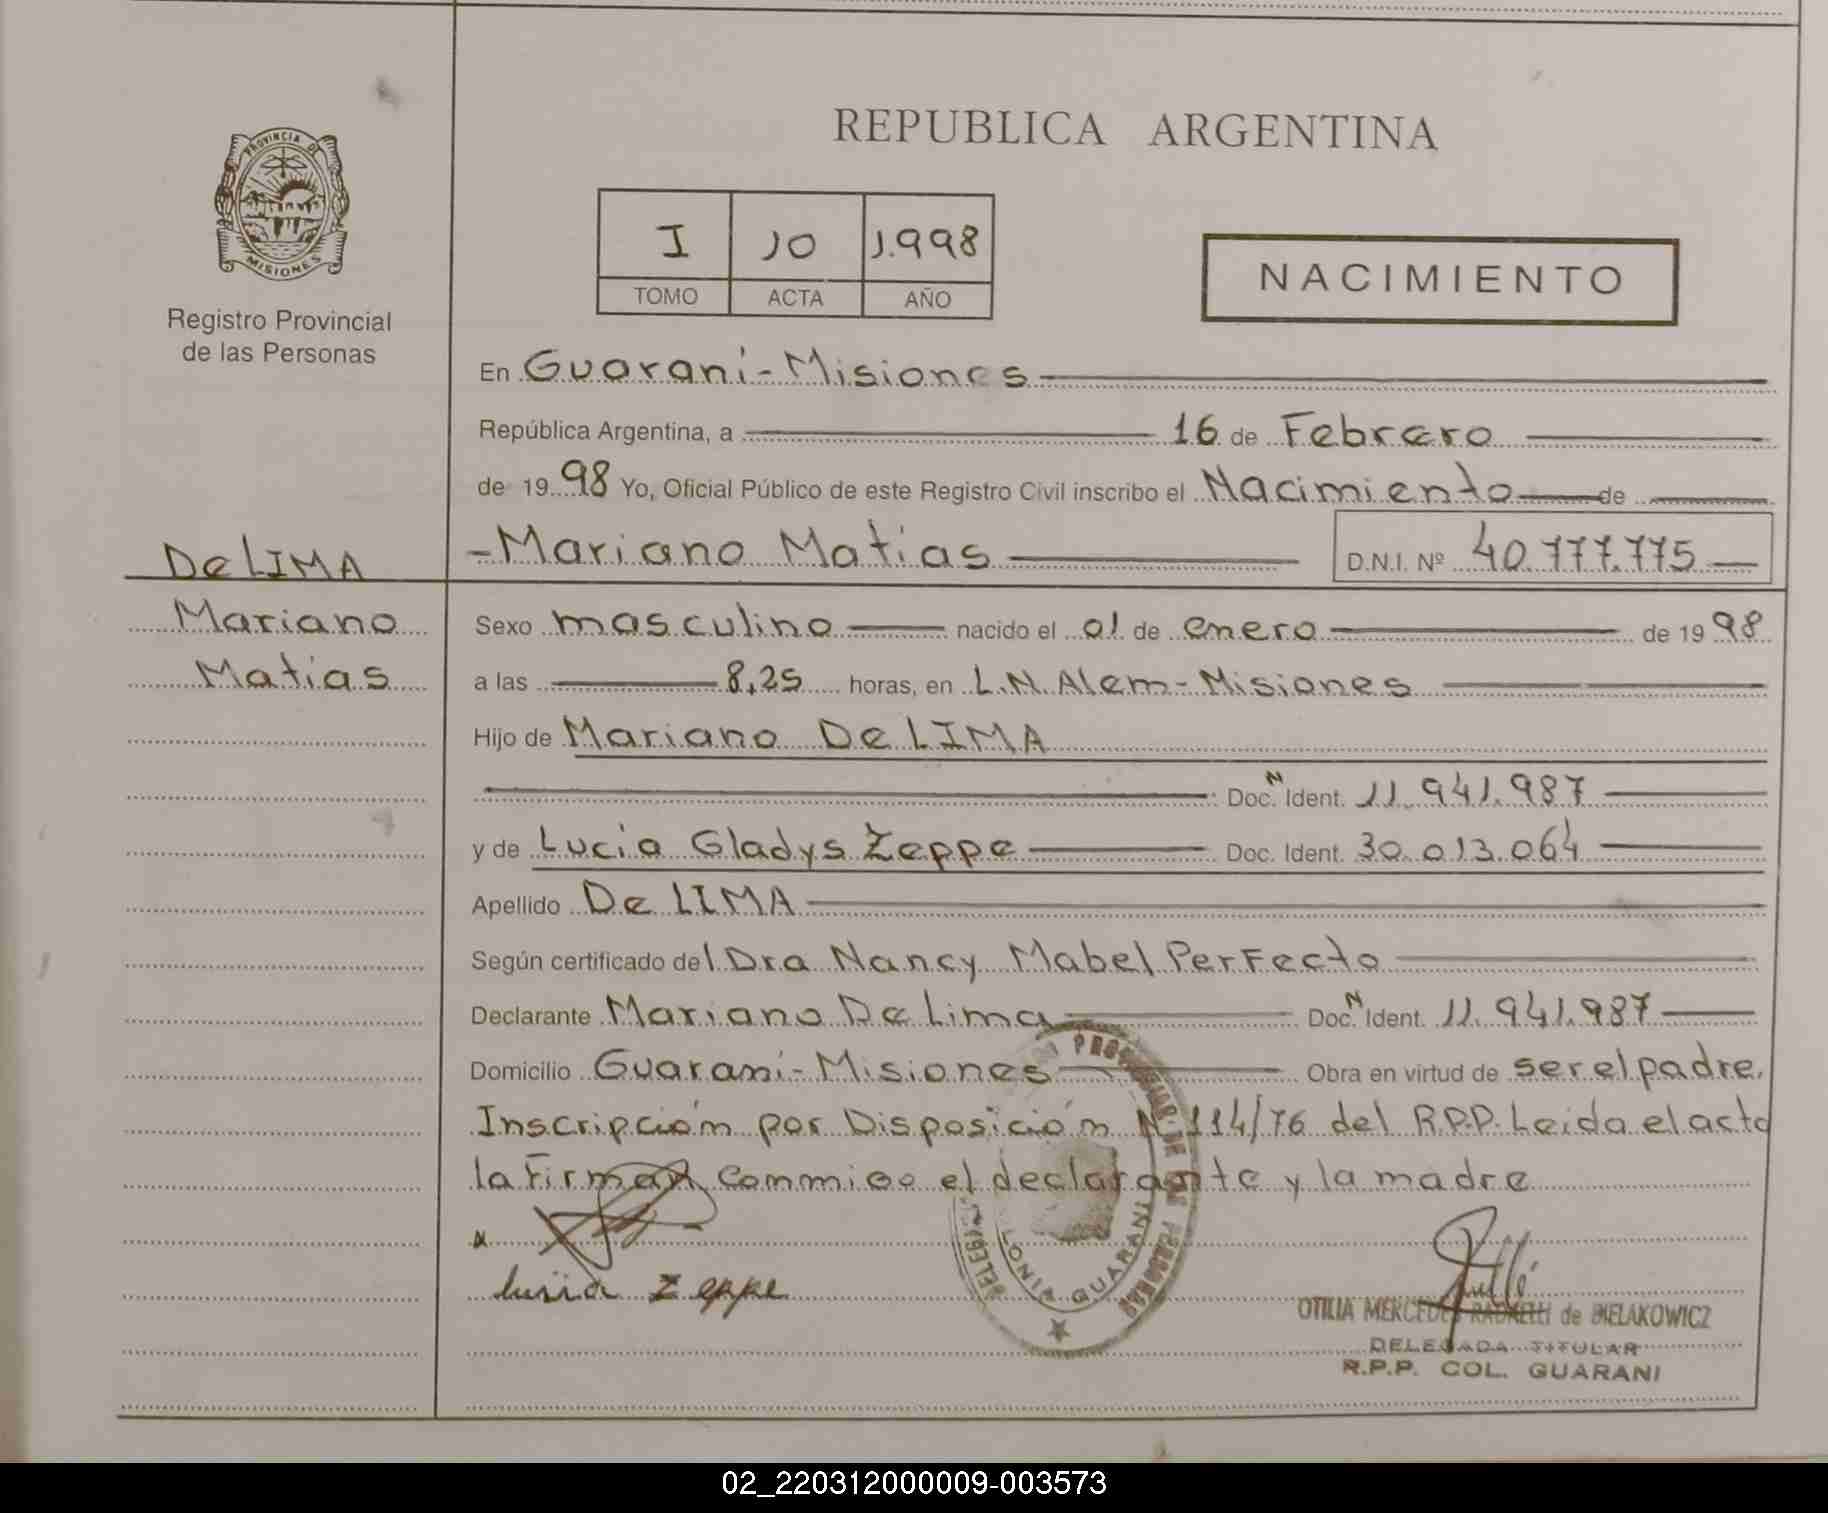 REPUBLICA ARGENTINA
PROVINCIA DE
MISIONES
Registro Provincial
de las Personas
I 10 1.998
TOMO ACTA AÑO
NACIMIENTO
En Guaraní-Misiones
República Argentina, a 16 de Febrero
de 19 98 Yo, Oficial Público de este Registro Civil inscribo el Nacimiento de
De LIMA
Mariano
Matías
-Mariano Matías D.N.I. Nº 40.777.775
Sexo masculino nacido el 01 de enero de 19 98
a las 8,25 horas, en L.N. Alem-Misiones
Hijo de Mariano De LIMA
Doc. N Ident. 11.941.987
y de Lucia Gladys Zeppe Doc. Ident. 30.013.064
Apellido De LIMA
Según certificado del Dra Nancy Mabel Perfecto
Declarante Mariano De Lima Doc. N Ident. 11.941.987
Domicilio Guaraní-Misiones Obra en virtud de ser el padre.
Inscripción por Disposición N 114/76 del R.P.P. Leida el acta
la firman conmigo el declarante y la madre
lusia zeppe
GUARANI
OTILIA MERCEDES de BIELAKOWICZ
DELEGADA TITULAR
R.P.P. COL. GUARANI
02_220312000009-003573